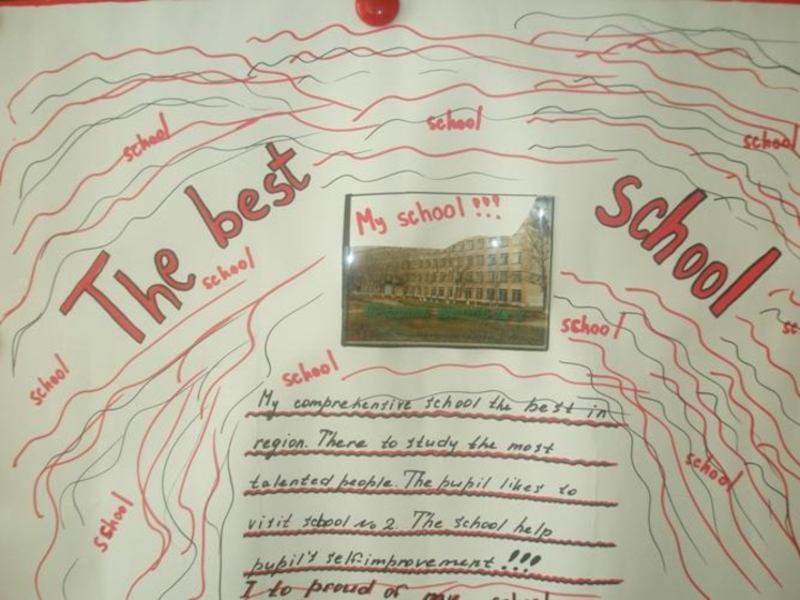 school
school
school
The best
school
My school!!!
school
school
school
school
school
My comprehensive school the best in
region. There to study the most
talented people. The pupil likes to
visit school № 2. The school help
pupil's self-improvement!!!
I to proud of my school
school
school